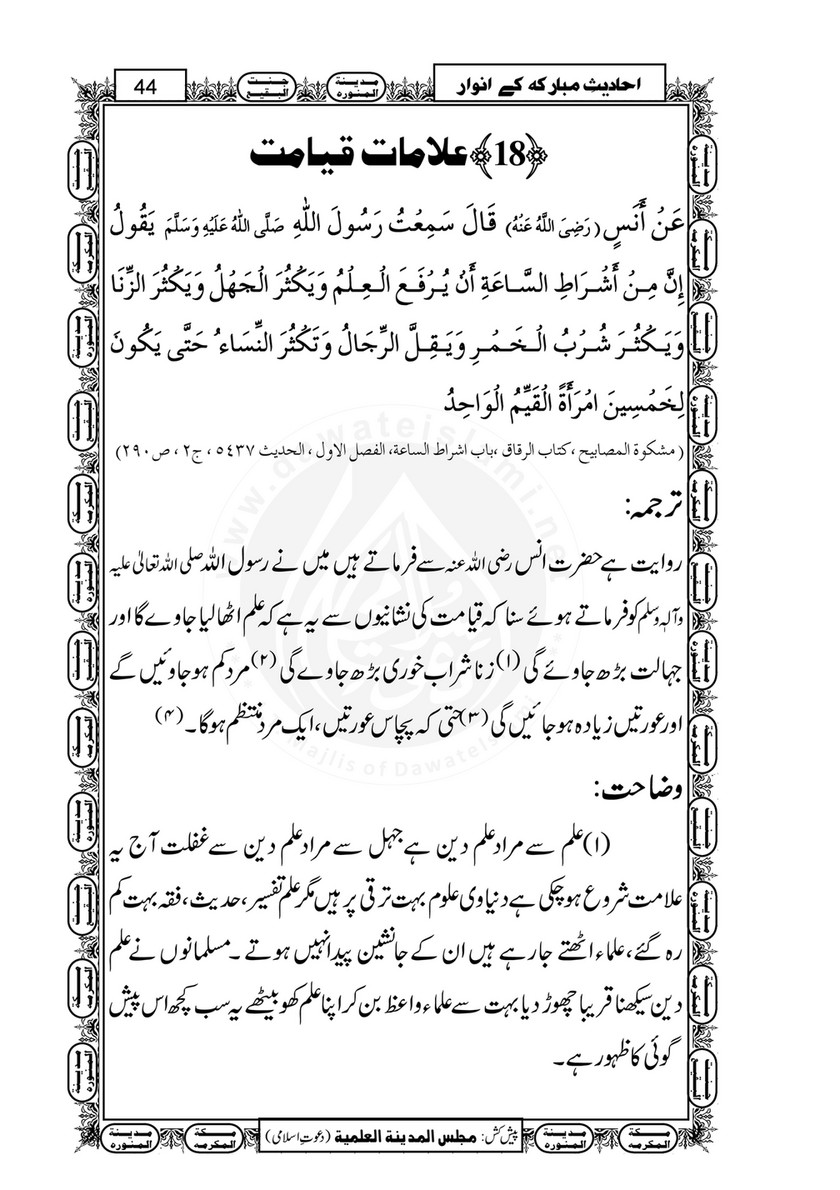 احادیثِ مبارکہ کے انوار
مدينة المنوره
جنت البقيع
44
﴿18﴾ علامات قیامت
عَنْ أَنَسٍ (رَضِيَ اللَّهُ عَنْهُ) قَالَ سَمِعْتُ رَسُولَ اللهِ صَلَّى اللهُ عَلَيْهِ وَسَلَّمَ يَقُولُ
إِنَّ مِنْ أَشْرَاطِ السَّاعَةِ أَنْ يُرْفَعَ الْعِلْمُ وَيَكْثُرَ الْجَهْلُ وَيَكْثُرَ الزِّنَا
وَيَكْثُرَ شُرْبُ الْخَمْرِ وَيَقِلَّ الرِّجَالُ وَتَكْثُرَ النِّسَاءُ حَتَّى يَكُونَ
لِخَمْسِينَ امْرَأَةً الْقَيِّمُ الْوَاحِدُ
(مشكوة المصابيح ،كتاب الرقاق ،باب اشراط الساعة، الفصل الاول ، الحديث ٥٤٣٧ ، ج٢ ، ص٢٩٠)
ترجمہ:
روایت ہے حضرت انس رضی اللہ عنہ سے فرماتے ہیں میں نے رسول اللہ صلی اللہ تعالیٰ علیہ
واٰلہٖ وسلم کو فرماتے ہوئے سنا کہ قیامت کی نشانیوں سے یہ ہے کہ علم اٹھالیا جاوے گا اور
جہالت بڑھ جاوئے گی (۱) زنا شراب خوری بڑھ جاوے گی (۲) مرد کم ہو جاوئیں گے
اور عورتیں زیادہ ہو جائیں گی (۳) حتی کہ پچاس عورتیں، ایک مرد منتظم ہوگا۔ (۴)
وضاحت:
(۱) علم سے مراد علم دین ہے جہل سے مراد علم دین سے غفلت آج یہ
علامت شروع ہو چکی ہے دنیاوی علوم بہت ترقی پر ہیں مگر علم تفسیر، حدیث، فقہ بہت کم
رہ گئے، علماء اٹھتے جارہے ہیں ان کے جانشین پیدا نہیں ہوتے ۔مسلمانوں نے علم
دین سیکھنا قریبا چھوڑ دیا بہت سے علماء واعظ بن کر اپنا علم کھو بیٹھے یہ سب کچھ اس پیش
گوئی کا ظہور ہے۔
www.dawateislami.net
Majlis of Dawateislami
مكة المكرمه
مدينة المنوره
پیش کش: مجلس المدینۃ العلمیۃ (دعوتِ اسلامی)
مكة المكرمه
مدينة المنوره